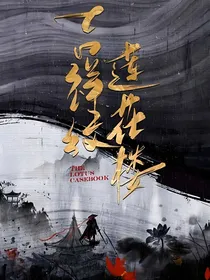 吉祥纹
莲花楼
THE
LOTUS
CASEBOOK